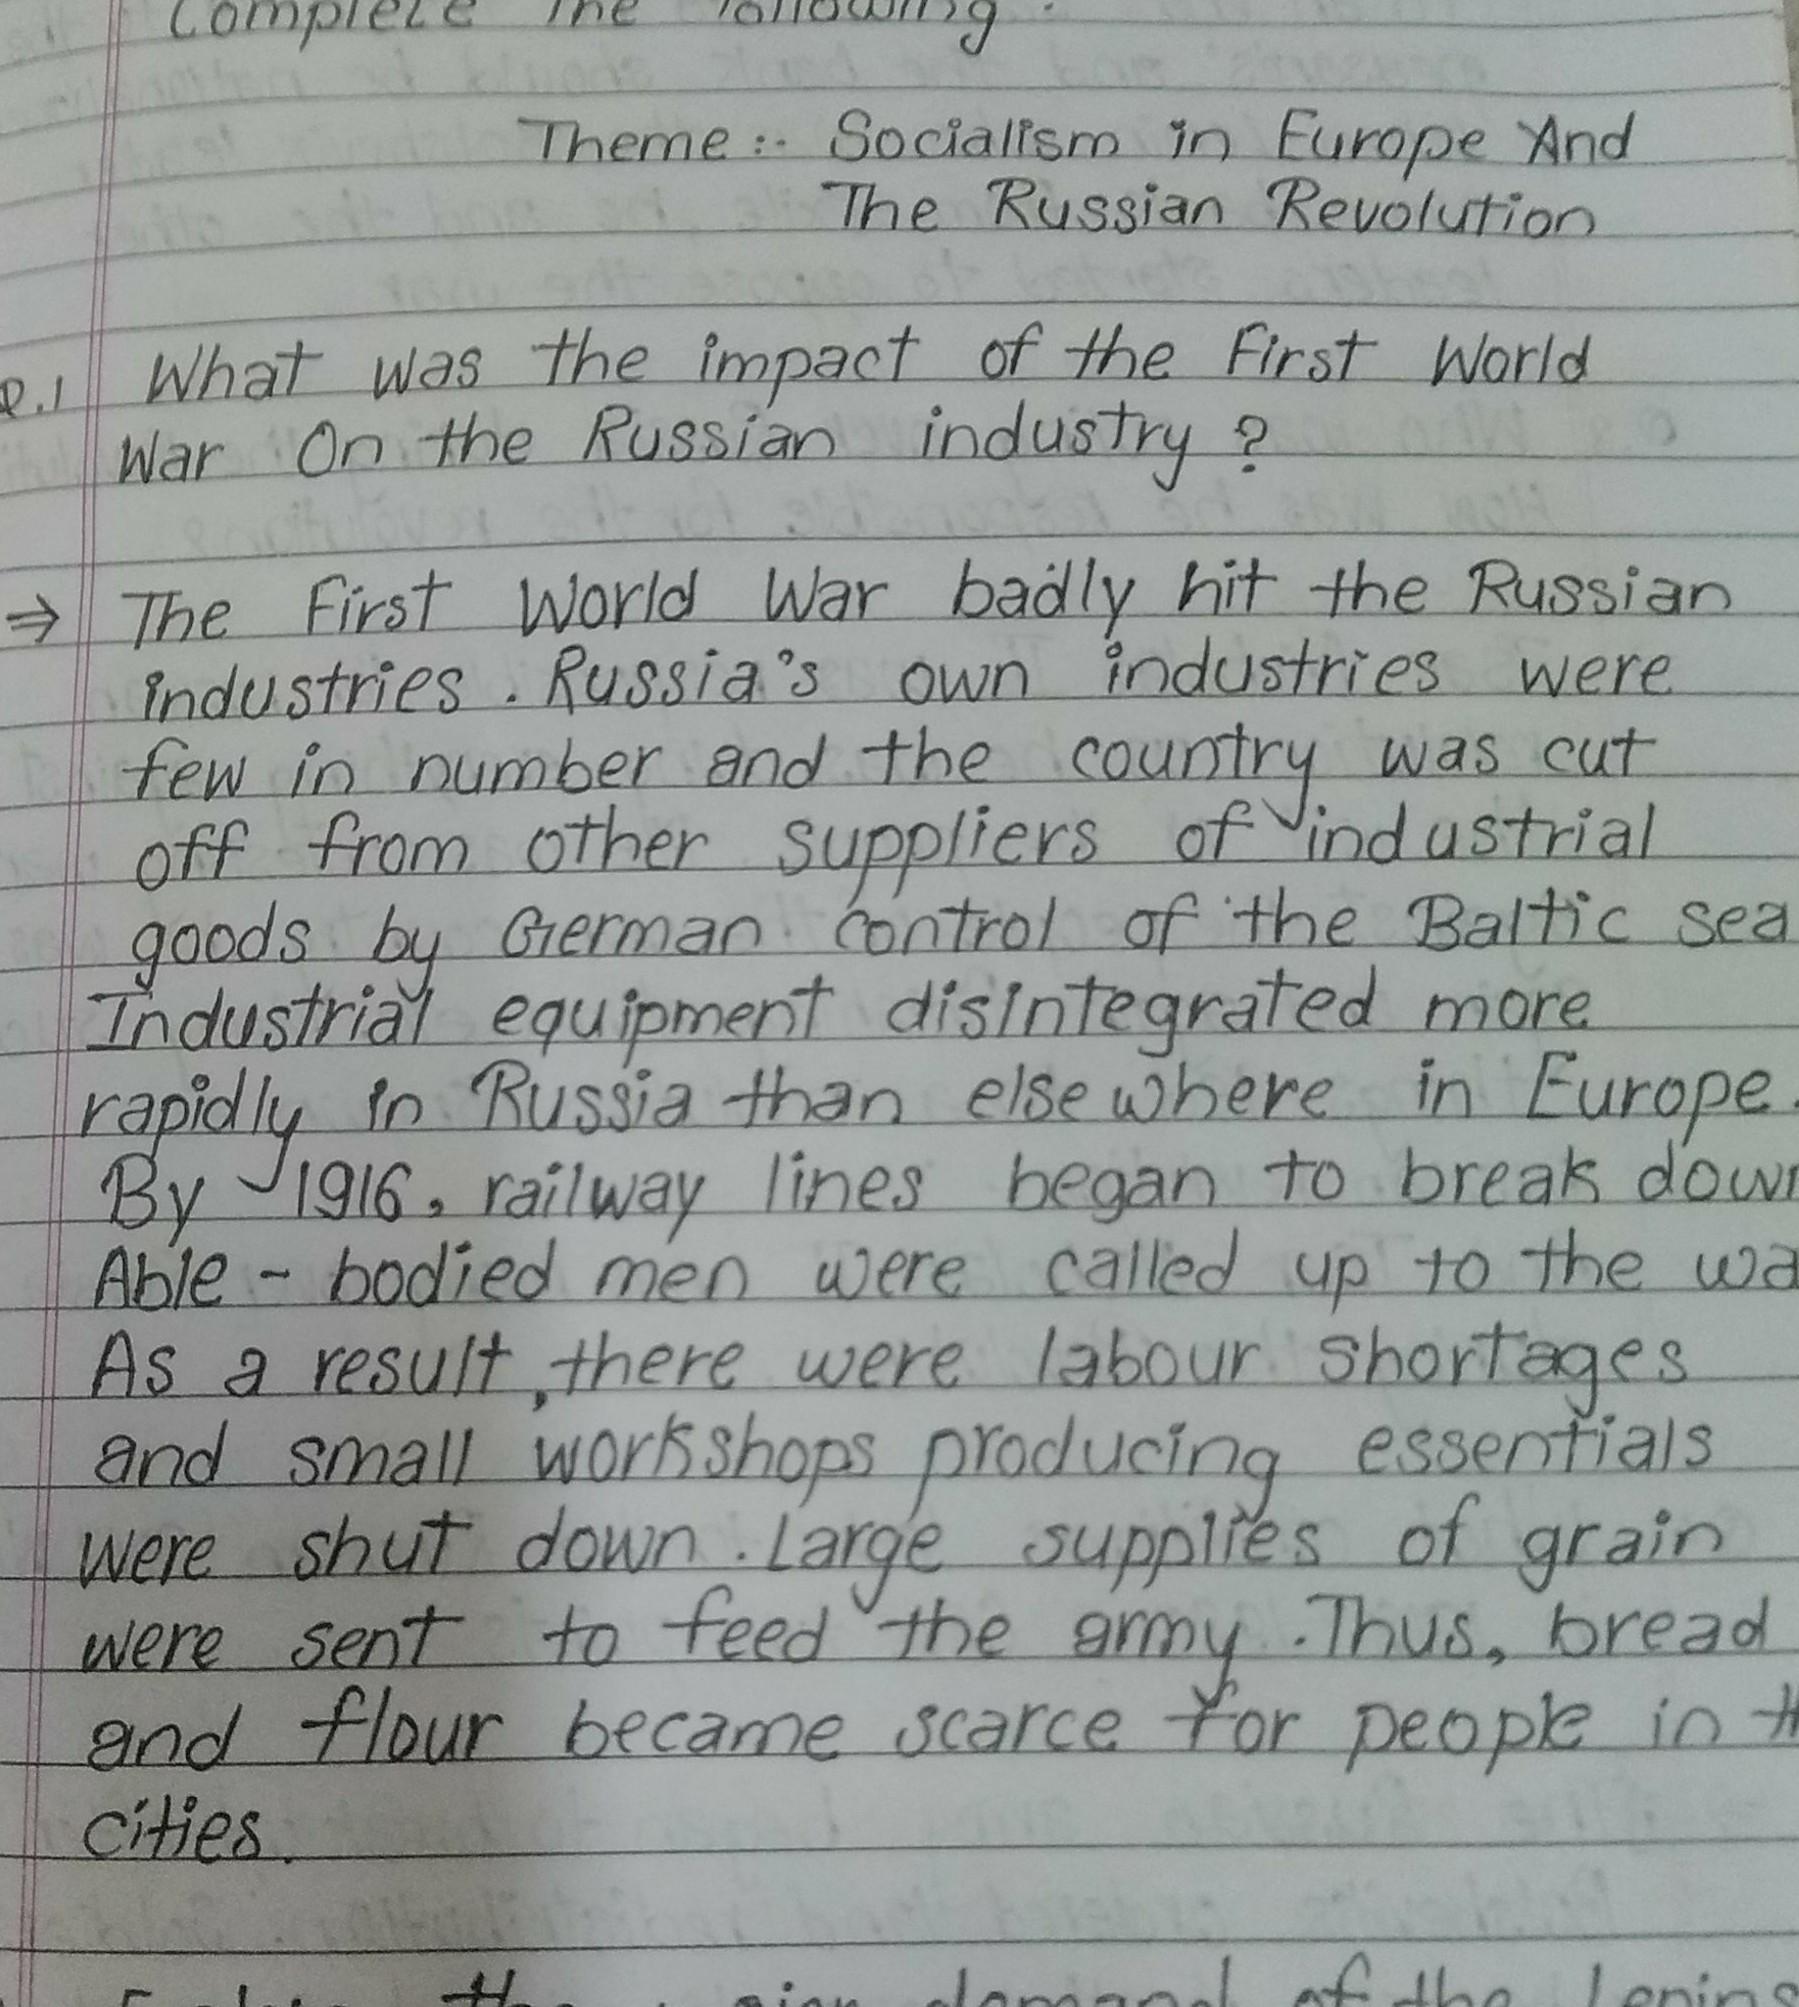 Complete the following.
Theme :- Socialism in Europe And
The Russian Revolution
Q.1 What was the impact of the First World
War On the Russian industry ?
⇒ The First World War badly hit the Russian
industries. Russia's own industries were
few in number and the country was cut
off from other suppliers of industrial
goods by German control of the Baltic sea
Industrial equipment disintegrated more
rapidly in Russia than elsewhere in Europe.
By 1916, railway lines began to break down
Able - bodied men were called up to the
As a result, there were labour shortages
and small workshops producing essentials
were shut down. Large supplies of grain
were sent to feed the army. Thus, bread
and flour became scarce for people in
cities.
the demand of the